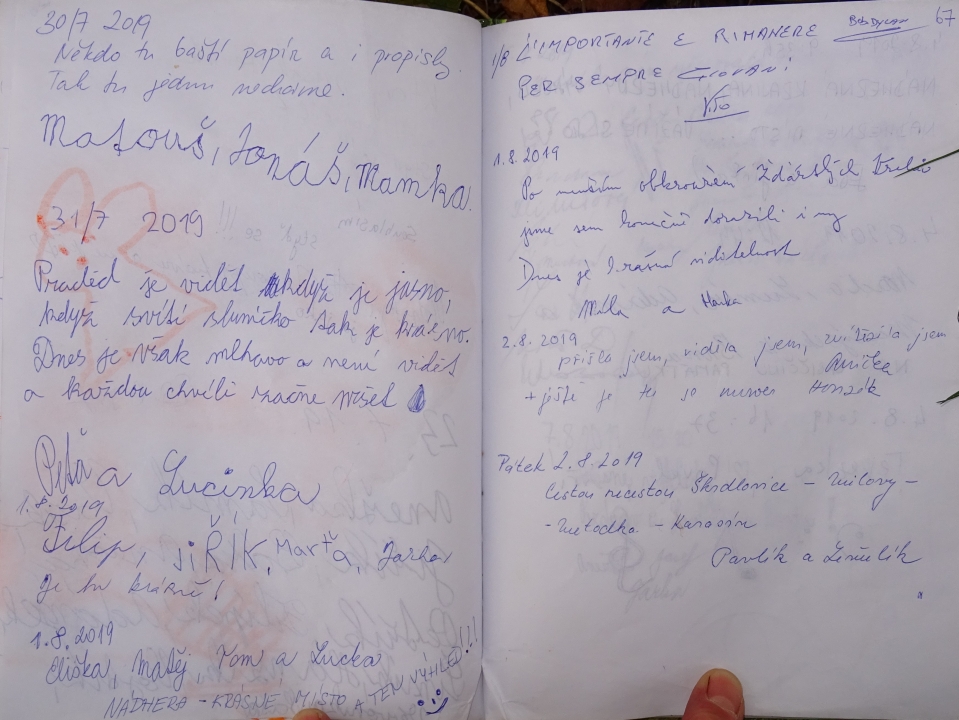 30/7 2019
Někdo tu baští papír a i propisky.
Tak tu jednu necháme.
Matouš, Jonáš, Mamka.
31/7 2019
Praděd je vidět když je jasno,
když svítí sluníčko tak je krásno.
Dnes je však mlhavo a není vidět
a každou chvíli začne pršet
Péťa a Lucinka
1.8.2019
Filip, JIŘÍK, Marťa,
Je tu krásně!
1.8.2019
Eliška, Matěj, Tom a Lucka
NÁDHERA - KRÁSNÉ MÍSTO A TEN VÝHLED!!! :)
67
1/8 L'IMPORTANTE E RIMANERE Bob Dylan
PER SEMPRE GIOVANI
Vito
1.8.2019
Po menším obkroužení Žďárských
jsme sem konečně dorazili i my
Dnes je krásná viditelnost
Míla a Hanka
2.8.2019
přišla jsem, viděla jsem, zvítězila jsem
Anička
+ ještě je tu se mnou Honzík
Pátek 2.8.2019
Cestou necestou Škrdlovice - Milovy -
- Karasín
Pavlík a